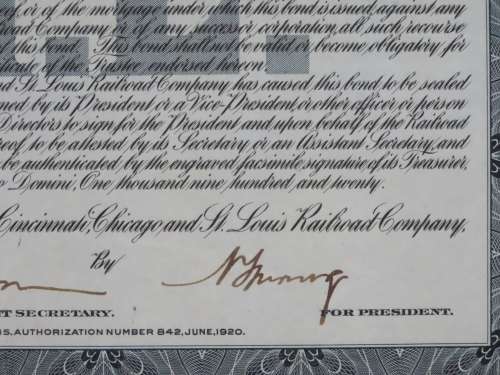 reof, or of the mortgage under which this bond is issued, against any
lroad Company or of any successor corporation, all such recourse
f this bond. This bond shall not be valid or become obligatory for
ficate of the Trustee, endorsed hereon.
nd St. Louis Railroad Company has caused this bond to be sealed
gned by its President or a Vice-President, or other officer or person
Directors to sign for the President and upon behalf of the Railroad
reof to be attested by its Secretary or an Assistant Secretary, and
be authenticated by the engraved facsimile signature of its Treasurer,
o Domini, One thousand nine hundred, and twenty.
Cincinnati, Chicago and St. Louis Railroad Company,
By
NT SECRETARY. FOR PRESIDENT.
S. AUTHORIZATION NUMBER 842, JUNE, 1920.